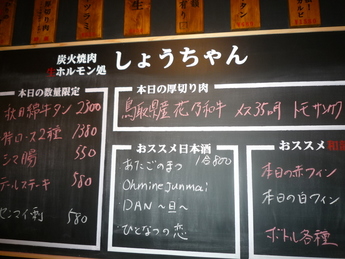 炭火焼肉
生ホルモン処
しょうちゃん
本日の数量限定
秋田錦牛タン 2300
特ロース2種 1380
シマ腸 550
テールステーキ 580
センマイ刺 580
本日の厚切り肉
鳥取県産 花乃和牛 メス35ヶ月 トモサンカク
おススメ日本酒
1合800
あたごのまつ
Ohmine Junmai
DAN 〜旦〜
ひとなつの恋
おススメ
本日の赤ワイン
本日の白ワイン
ボトル各種